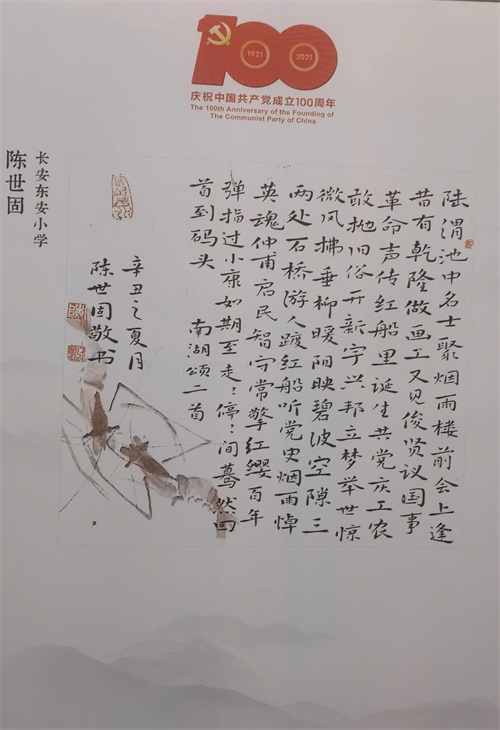 100
1921
2021
庆祝中国共产党成立100周年
The 100th Anniversary of the Founding of
The Communist Party of China
陆渭池中名士聚烟雨楼前会上逢
昔有乾隆做画工又见俊贤议国事
革命声传红船里诞生共党庆工农
敢抛旧俗开新宇兴邦立梦举世惊
微风拂垂柳暖阳映碧波空隙三
两处石桥游人踱红船听党史烟雨悼
英魂仲甫启民智守常擎红缨百年
弹指过小康如期至走々停々间蓦然回
首到码头 南湖颂二首
辛丑之夏月
陈世固敬书
长安东安小学
陈世固